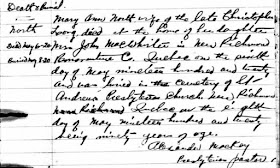 Death & burial
Mary Ann North wife of the late Christopher
North
Long, died at the home of her daughter
Died May 6-20
Mrs John MacWhirter in New Richmond
Buried May 8-20
Bonaventure Co. Quebec on the sixth
day of May nineteen hundred and twenty
and was buried in the cemetery of St
Andrews Presbyterian Church, New Richmond
on the eighth
day of May nineteen hundred and twenty
being ninety years of age.
Alexander Mackay
Presbyterian pastor